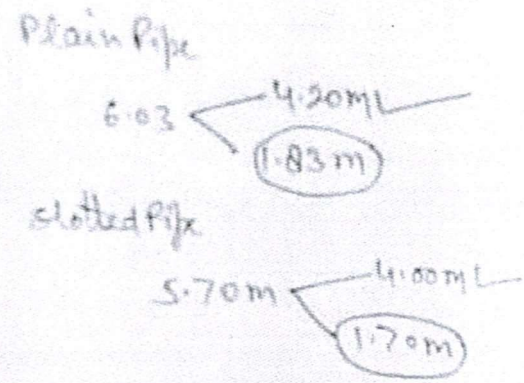 Plain Pipe
6.03
4.20m
1.83m
Slotted Pipe
5.70m
4.00m
1.70m